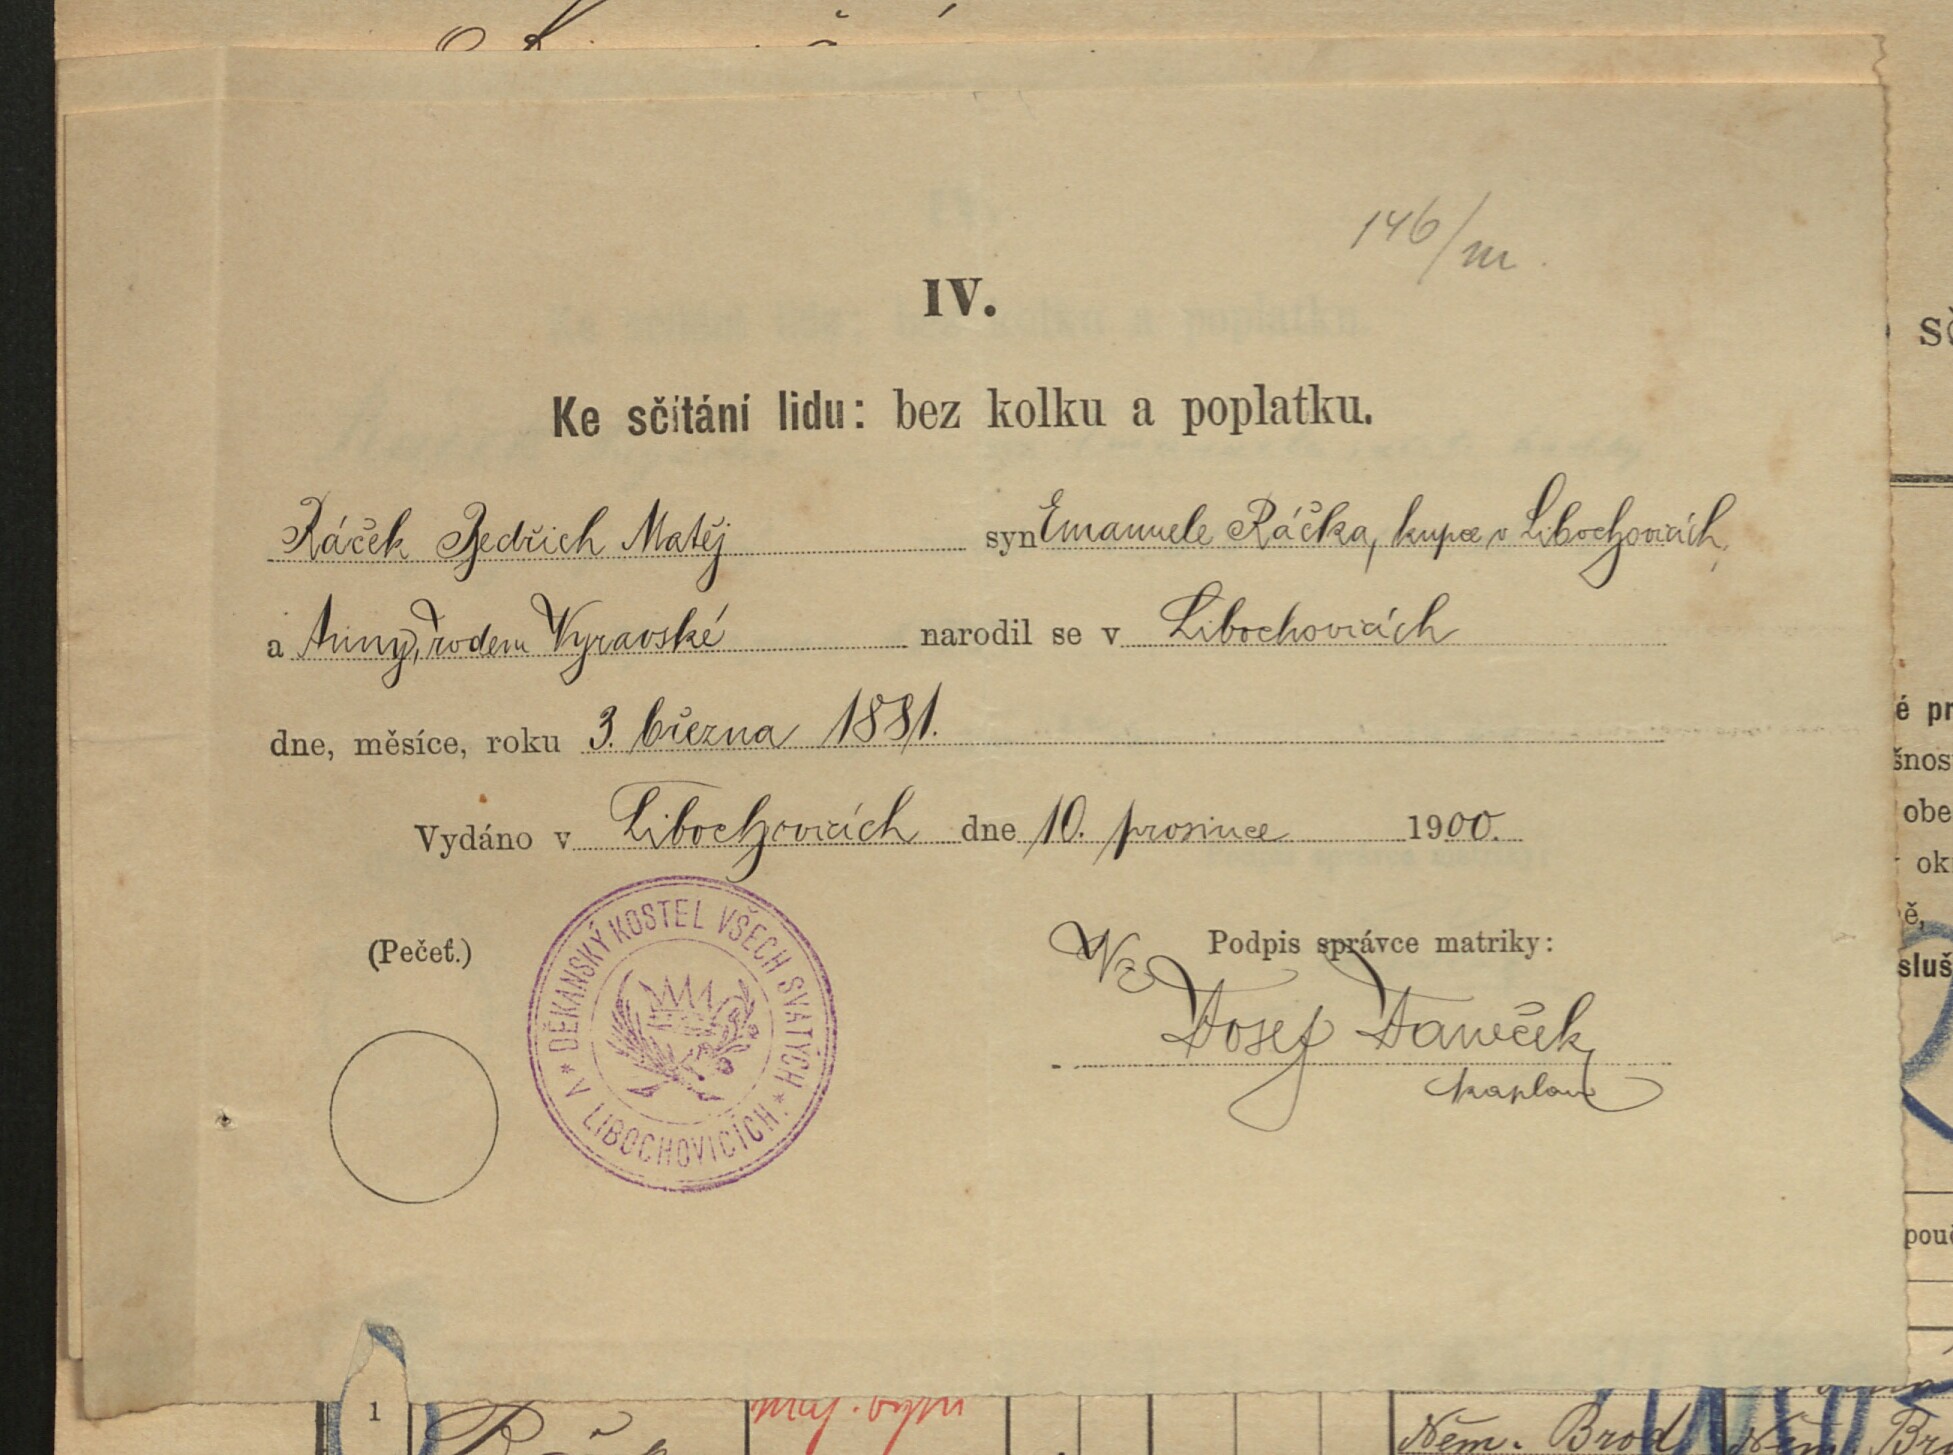 146/III.
IV.
Ke sčítání lidu: bez kolku a poplatku.
Ráček Bedřich Matěj syn Emanuele Ráčka, kupce v Libochovicích,
a Anny, rodem Vyravské narodil se v Libochovicích
dne, měsíce, roku 3. března 1881.
Vydáno v Libochovicích dne 10. prosince 1900.
(Pečeť.)
DĚKANSKÝ KOSTEL VŠECH SVATÝCH * V LIBOCHOVICÍCH. *
Podpis správce matriky:
Vz
Josef Janeček
kaplan
1
Něm. Brod